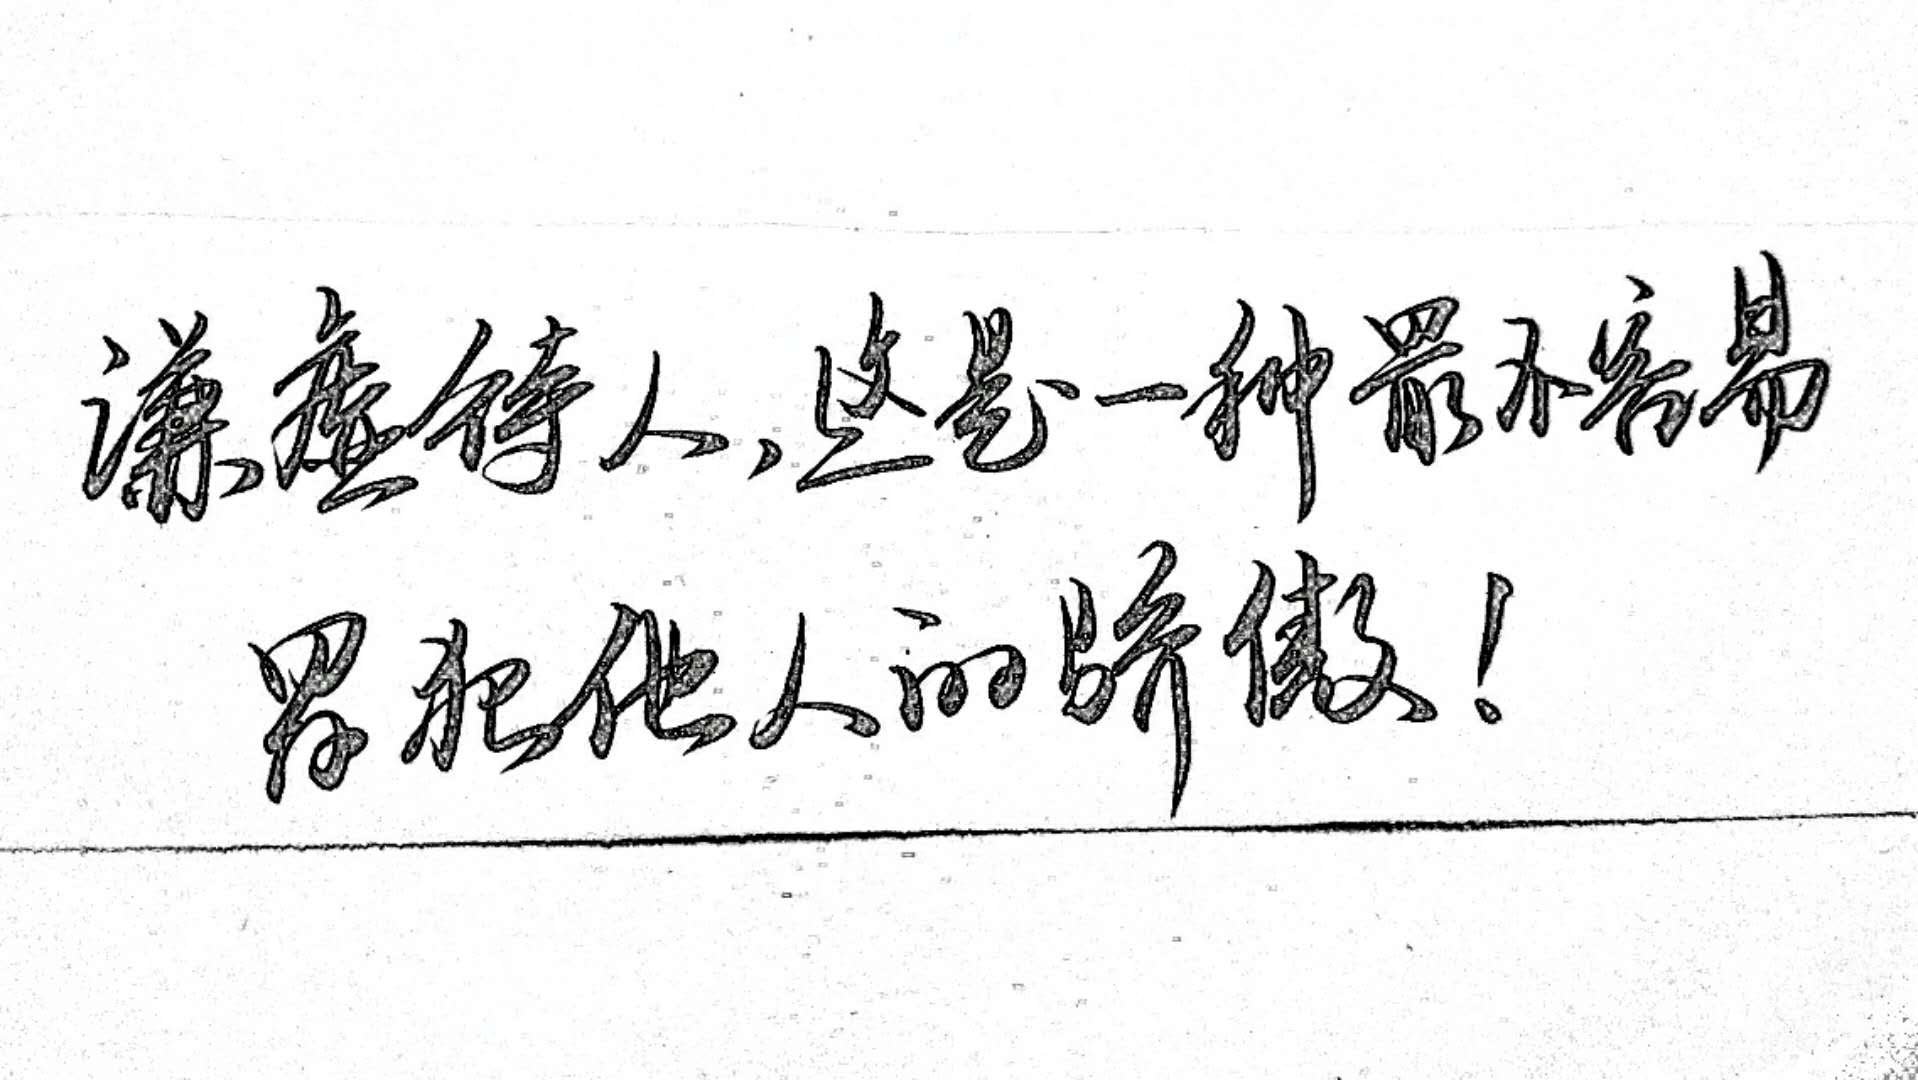 谦虚待人,这是一种最不容易
冒犯他人的骄傲!